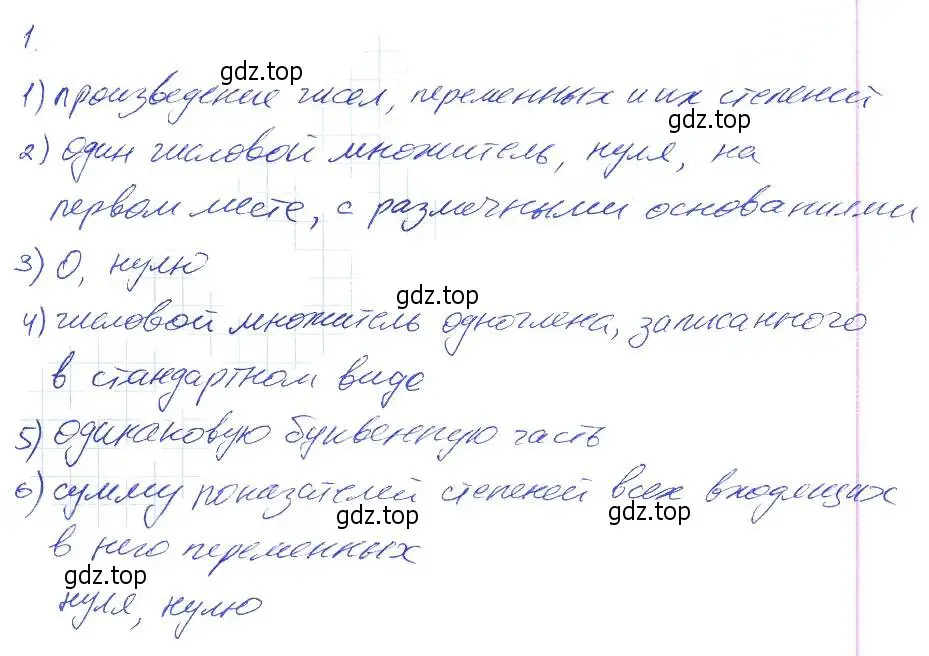 1.
gdz.top
1) произведение чисел, переменных и их степеней
gdz.top
2) один числовой множитель, нуля, на
первом месте, с различными основаниями
3) 0, нулю
gdz.top
4) числовой множитель одночлена, записанного
в стандартном виде
5) одинаковую буквенную часть
6) сумму показателей степеней всех входящих
gdz.top gdz.top
в него переменных
gdz.top
нуля, нулю